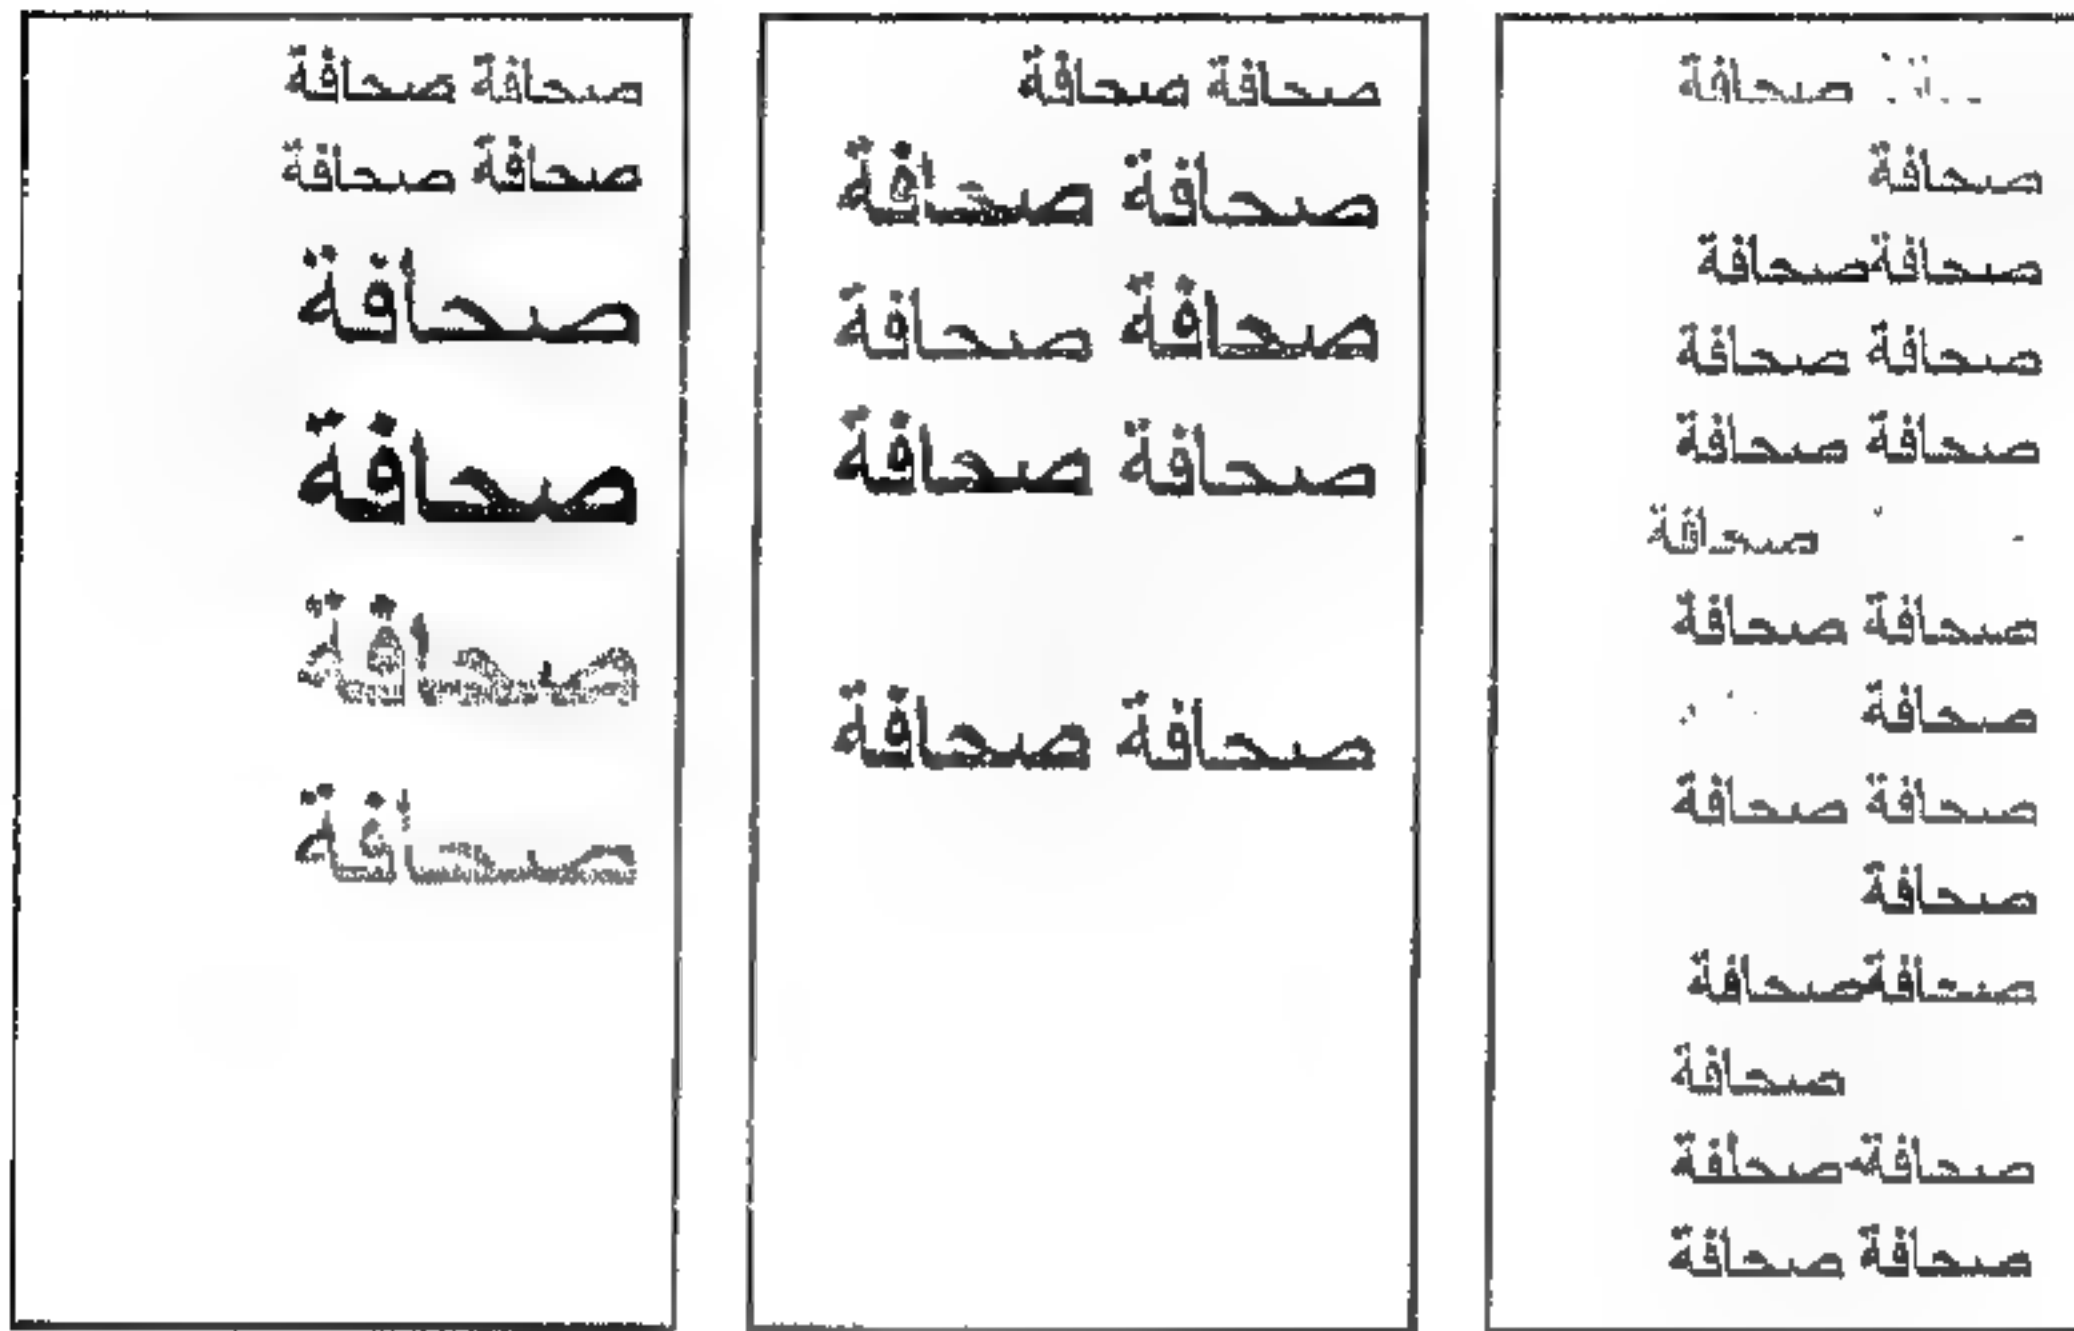 صحافة
صحافة
صحافةصحافة
صحافة صحافة
صحافة صحافة
صحافة
صحافة صحافة
صحافة
صحافة صحافة
صحافة
صحافةصحافة
صحافة
صحافة صحافة
صحافة صحافة
صحافة صحافة
صحافة صحافة
صحافة صحافة
صحافة صحافة
صحافة صحافة
صحافة صحافة
صحافة صحافة
صحافة
صحافة
صحافة
صحافة